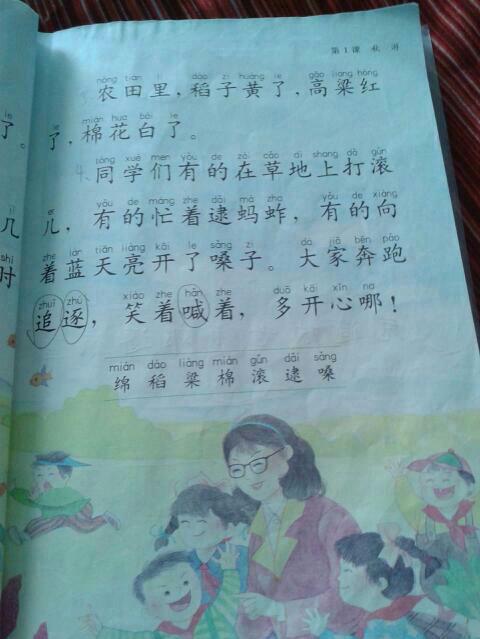 第1课 秋游
nóng tián lǐ dào zi huáng le gāo liang hóng
农田里，稻子黄了，高粱红
le mián huā bái le
了。 了，棉花白了。
tóng xué men yǒu de zài cǎo dì shang dǎ gǔn
4. 同学们有的在草地上打滚
ér yǒu de máng zhe dǎi mà zha yǒu de xiàng
几 儿，有的忙着逮蚂蚱，有的向
shí zhe lán tiān liàng kāi le sǎng zi dà jiā bēn pǎo
时 着蓝天亮开了嗓子。大家奔跑
zhuī zhú xiào zhe hǎn zhe duō kāi xīn na
追逐，笑着喊着，多开心哪！
mián dào liáng mián gǔn dǎi sǎng
绵 稻 梁 棉 滚 逮 嗓